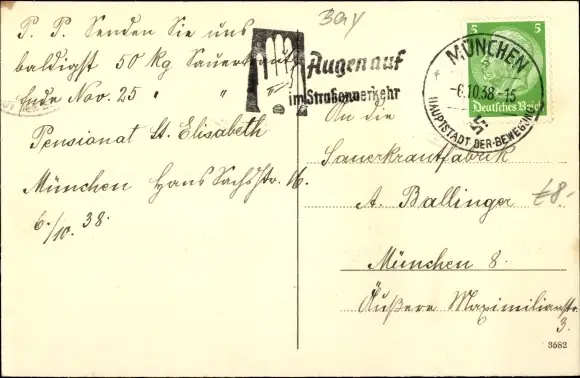 P. P. Senden Sie uns
baldigst 50 kg Sauerkraut,
Ende Nov. 25 " "
Pensionat St. Elisabeth
München Hans Sachsstr. 16.
6./10. 38.
Bay
Augen auf
im Straßenverkehr
MÜNCHEN
-6.10.38-15
HAUPTSTADT DER BEWEGUNG
5 5
Deutsches Reich
An die
Sauerkrautfabrik
A. Ballinger
£8-
München 8.
Äußere Maximilianstr.
3.
3582